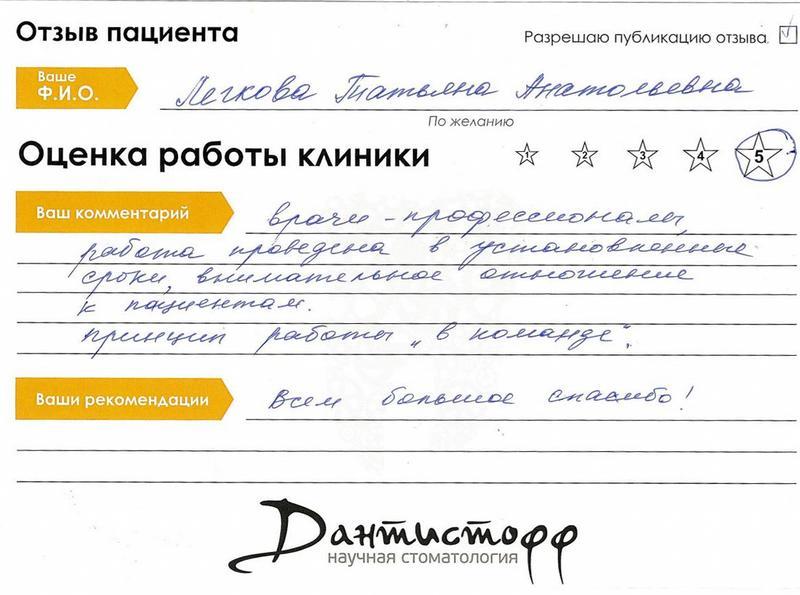 Отзыв пациента
Разрешаю публикацию отзыва
Ваше
Ф.И.О.
Легкова Татьяна Анатольевна
По желанию
Оценка работы клиники
1 2 3 4 5
Ваш комментарий
врачи - профессионалы,
работа проведена в установленные
сроки, внимательное отношение
к пациентам.
принцип работы „в команде".
Ваши рекомендации
Всем большое спасибо!
Дантистофф
научная стоматология